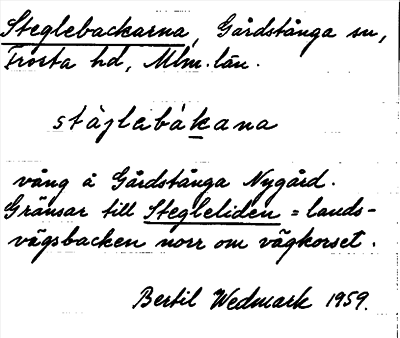 Steglebackarna, Gårdstånga sn,
Frosta hd, Mlm. län.
stä̀jlebákana
vång å Gårdstånga Nygård.
Gränsar till Stegleliden = lands-
vägsbacken norr om vägkorset.
Bertil Wedmark 1959.